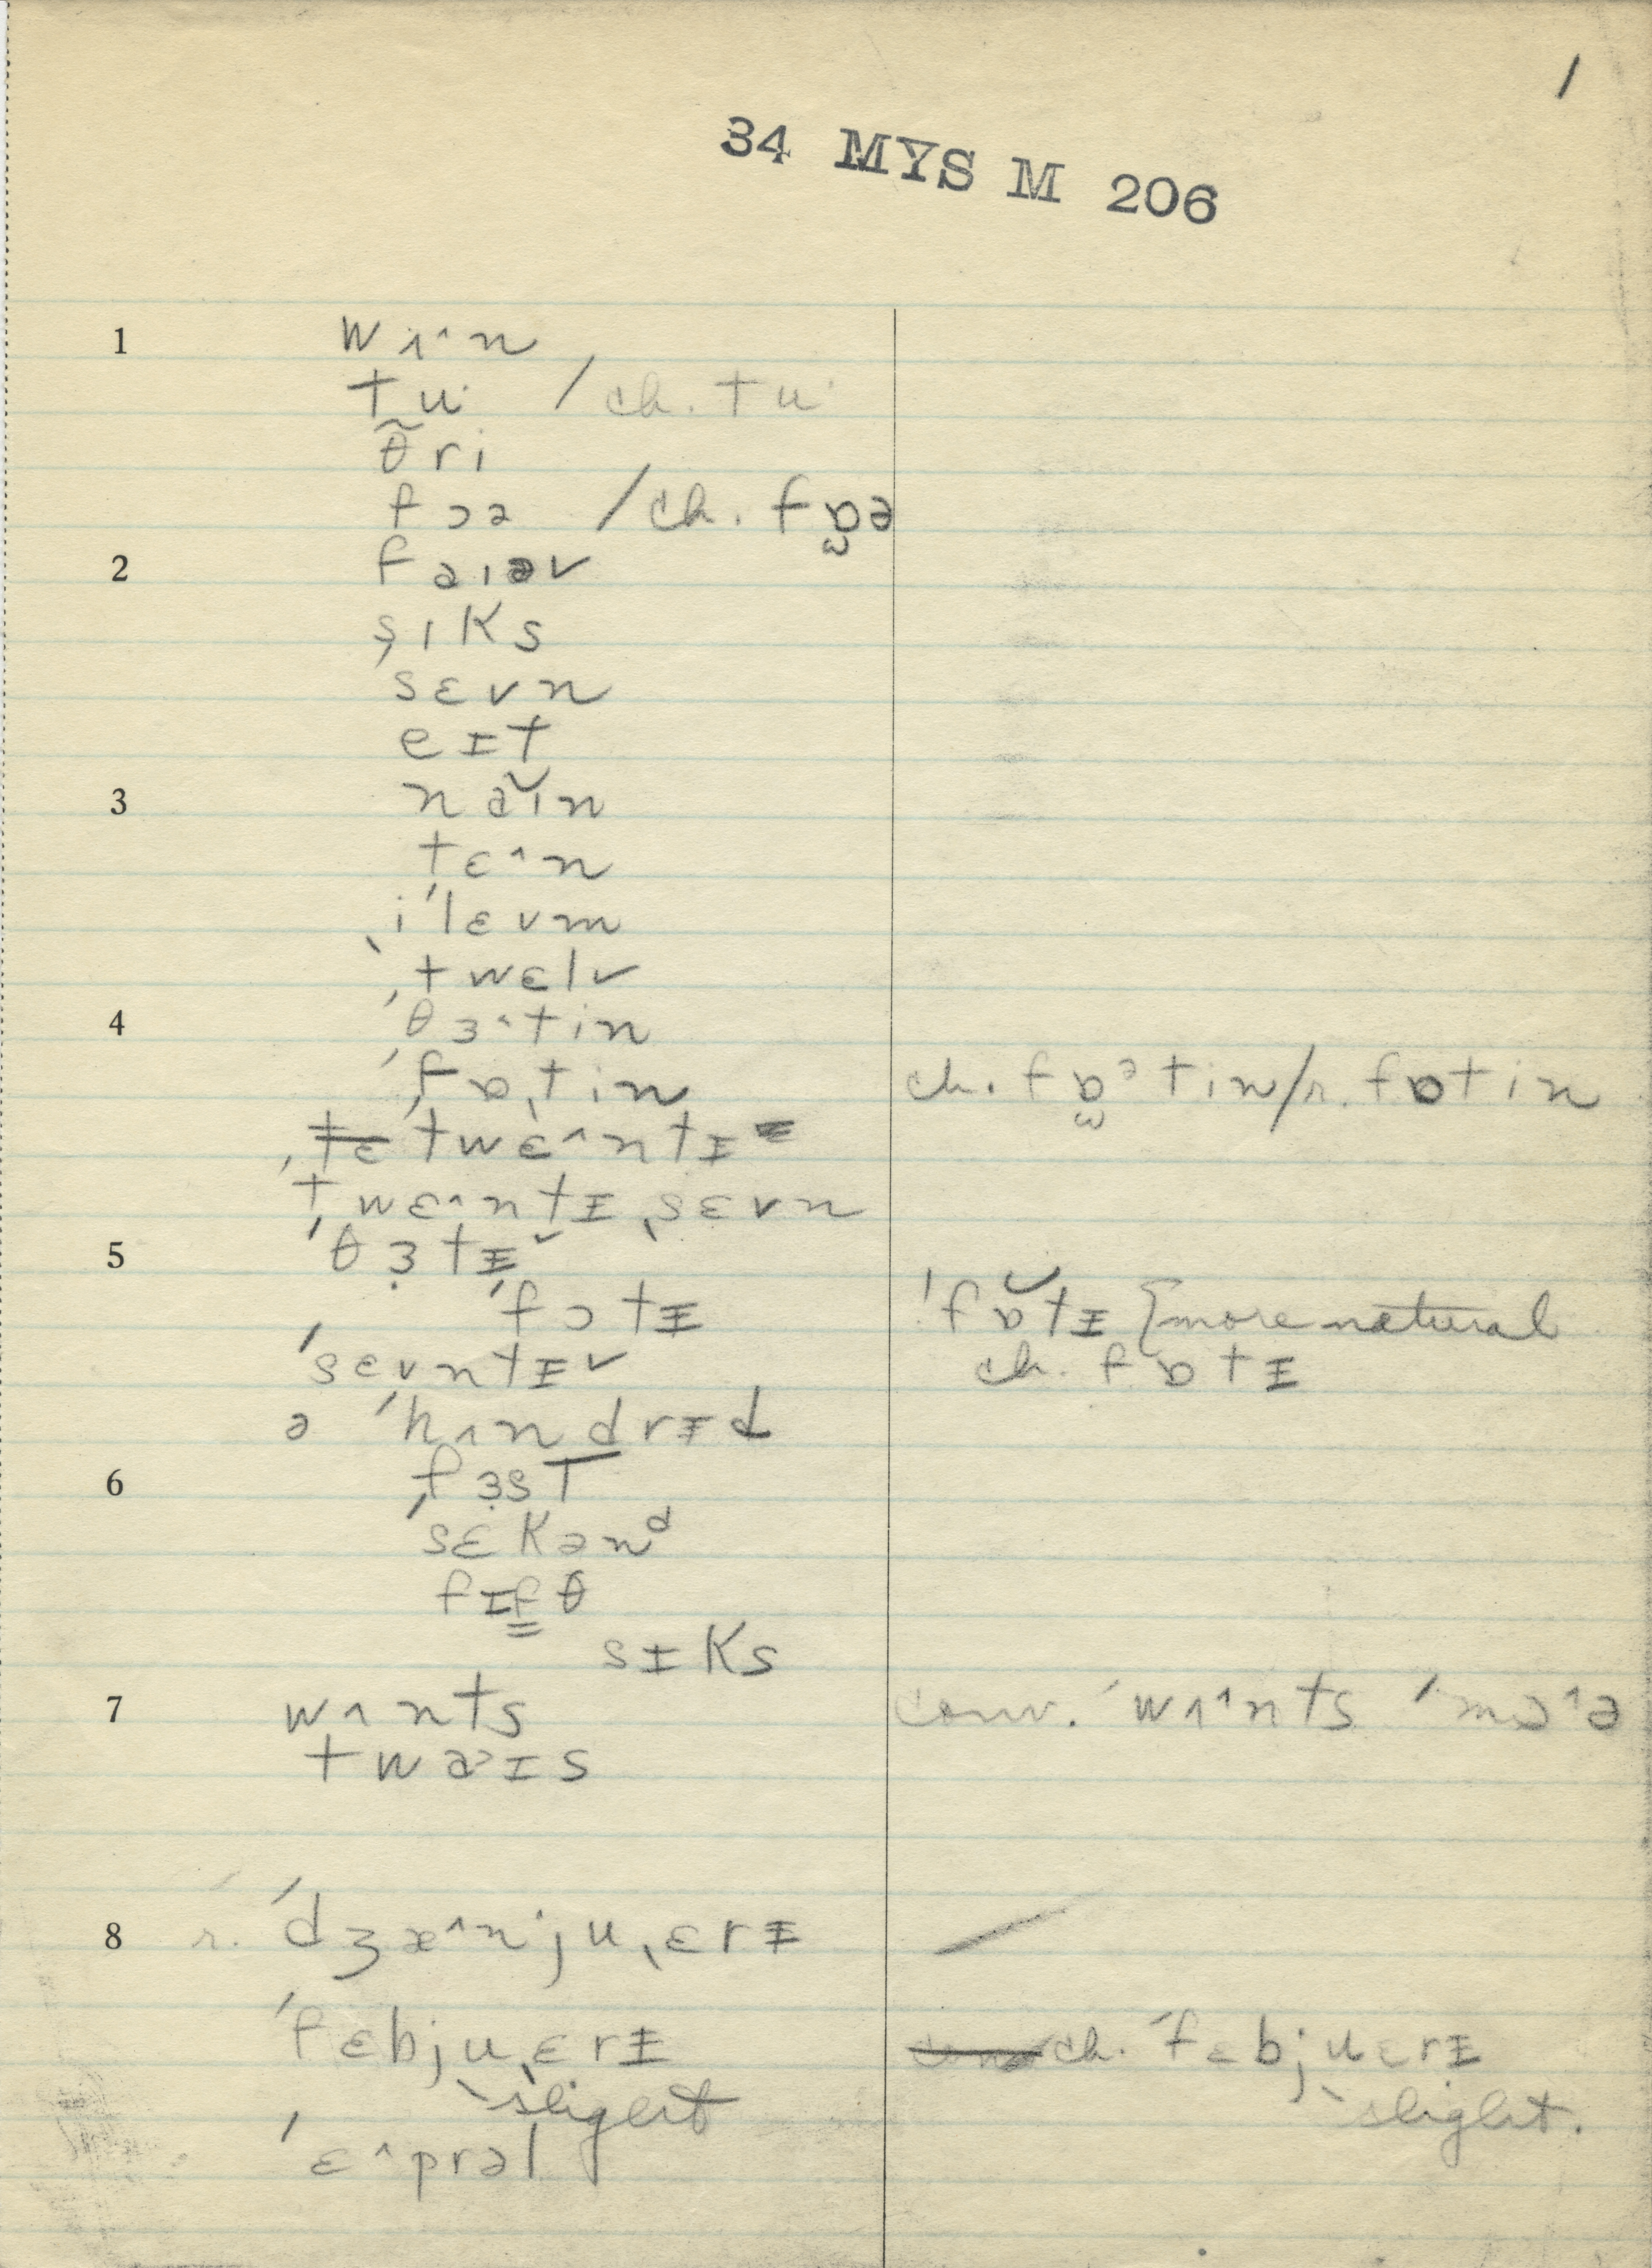 1
34 MYS M 206
1 wʌ˄n
tu· / ch. tu·
θ̃ri
fɔə / ch. fɒ̫ə
2 faɪəv
sɪks
sɛvn
eɪt
3 naɪ̆n
tɛ˄n
i'lɛvm
twɛlv
4 'θɜ˄tin
'fɒˌtin ch. fɒ̫ᵊtin/r. fɒtin
'twɛ˄ntɪ
'twɛ˄ntɪˌsɛvn
5 'θɜ̣tɪ˅
'fɔtɪ 'fɒ̆tɪ {more natural
'sɛvntɪ˅ ch. fɒtɪ
ə 'hʌndrɪd
6 fɜ̣st
'sɛkənᵈ
fɪfθ
sɪks
7 wʌnts conv. 'wʌ˄nts 'mɔ˄ə
twa˃ɪs
8 r. 'dʒæ˄njuˌɛrɪ
'fɛbjuˌɛrɪ ch. 'fɛbjuɛrɪ
slight slight.
'ɛ˄prəl